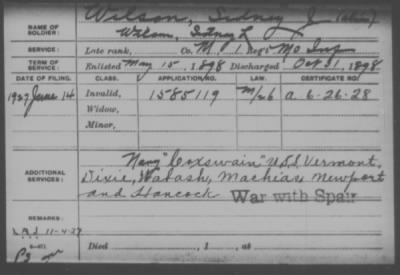 Wilson, Sidney J (alias)
NAME OF SOLDIER: Wilson, Sidney L
SERVICE: Late rank, Co. M, 1 Reg't Mo Inf
TERM OF SERVICE: Enlisted May 15, 1898 Discharged Oct 31, 1898
DATE OF FILING. CLASS. APPLICATION NO. LAW. CERTIFICATE NO.
1927 June 14 Invalid, 1585119 a. 6-26-28
Widow,
Minor,
ADDITIONAL SERVICES: Navy "Coxswain" U.S.S. Vermont,
Dixie, Wabash, Machias, Newport
and Hancock War with Spain
REMARKS:
11-4-27
Died , 1 , at